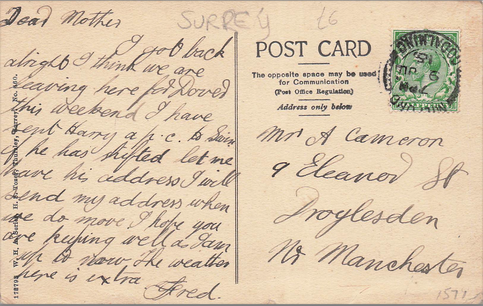 SURREY £6
Dear Mother
I got back
alright I think we are
leaving here for
this weekend I have
sent Harry a p.c. to
if he has shifted let me
have his address I will
send my address when
we do move I hope you
are keeping well as I am
up to now. The weather
here is extra Fred.
POST CARD
The opposite space may be used
for Communication
(Post Office Regulation)
Address only below
GODALMING
Mr A Cameron
9 Eleanor St
Droylesden
Nr Manchester
1571